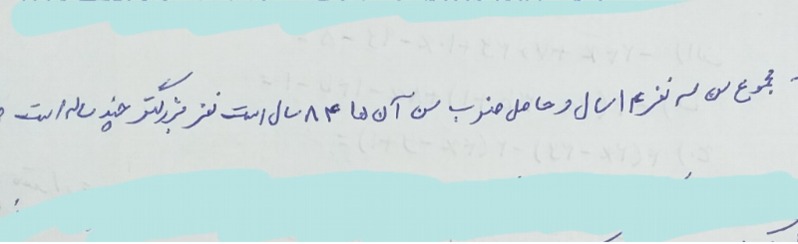 مجموع سن سه نفر ۱۴ سال و حاصل ضرب سن آن ها ۸۴ سال است نفر بزرگتر چند ساله است